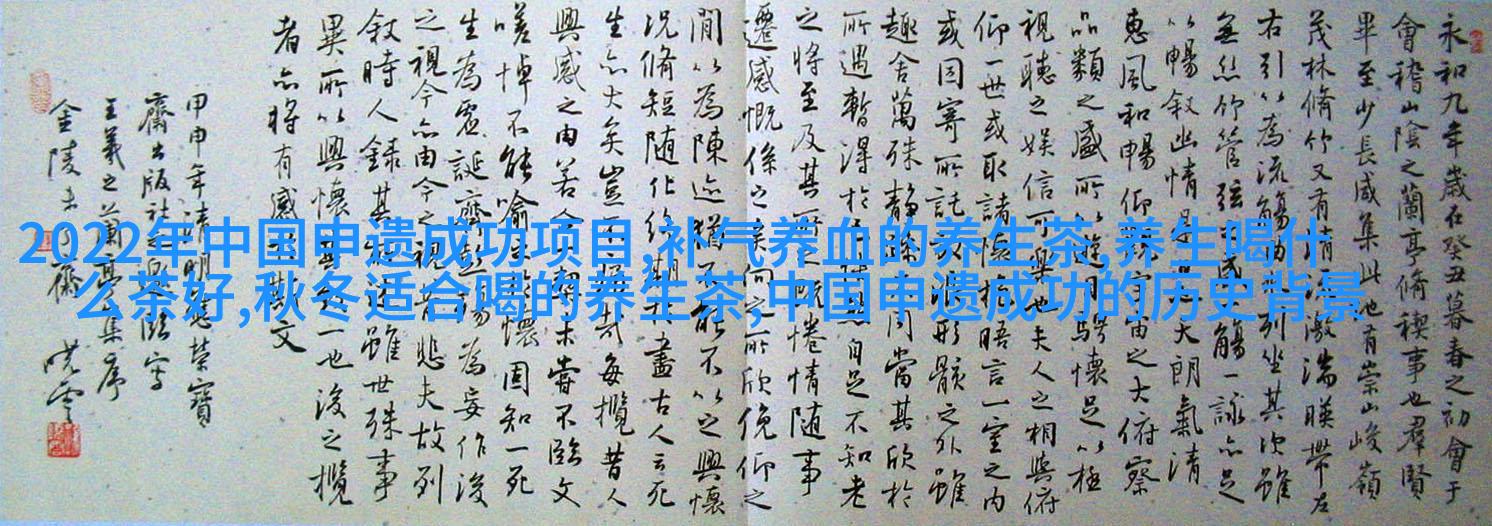 永和九年歲在癸丑暮春之初會于
會稽山陰之蘭亭脩禊事也羣賢
畢至少長咸集此地有崇山峻嶺
茂林脩竹又有清流激湍暎帶左
右引以為流觴曲水列坐其次雖
無絲竹管弦之盛一觴一詠亦足
以暢敘幽情是日也天朗氣清
惠風和暢仰觀宇宙之大俯察
品類之盛所以遊目騁懷足以極
視聽之娛信可樂也夫人之相與俯
仰一世或取諸懷抱晤言一室之內
或因寄所託放浪形骸之外雖
趣舍萬殊靜躁不同當其欣於
所遇暫得於己快然自足不知老
之將至及其所之既惓情隨事
遷感慨係之矣向之所欣俛仰之
間以為陳迹猶不能不以之興懷
況脩短隨化終期於盡古人云死
生亦大矣豈不痛哉每攬昔人
興感之由若合一契未嘗不臨文
嗟悼不能喻之於懷固知一死
生為虛誕齊彭殤為妄作後
之視今亦由今之視昔悲夫故列
敘時人錄其所述雖世殊事
異所以興懷其致一也後之攬
者亦將有感於斯文
甲申年清明應榮寶
齋出版社之囑寫
王羲之蘭亭集序
金陵未了齋 曉雲
2022年中国申遗成功项目,补气养血的养生茶,养生喝什
么茶好,秋冬适合喝的养生茶,中国申遗成功的历史背景